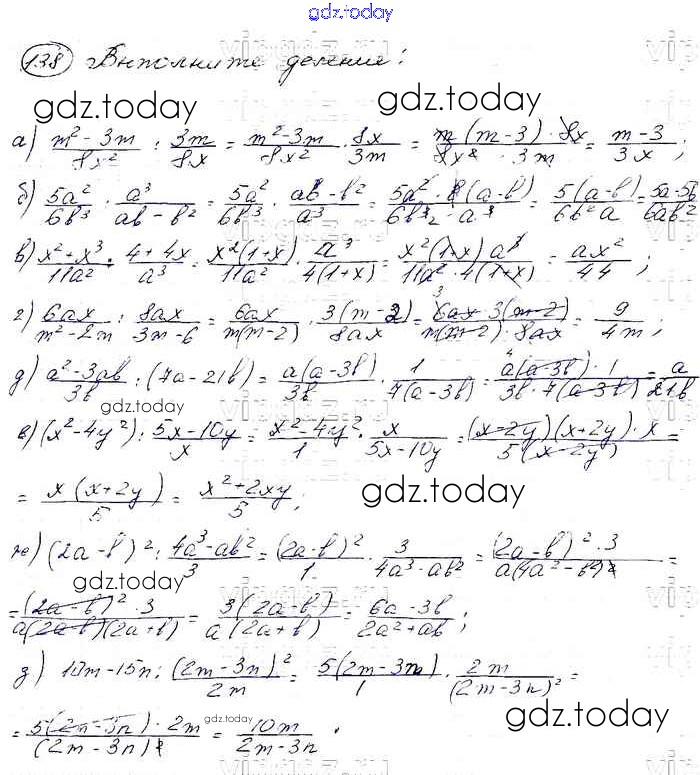 gdz.today
138 Выполните деление:
gdz.today gdz.today
а) (m² - 3m)/(8x²) : 3m/8x = (m² - 3m)/(8x²) · 8x/3m = (m(m-3) · 8x)/(8x² · 3m) = (m-3)/(3x) ;
б) 5a²/6b³ : a³/(ab - b²) = 5a²/6b³ · (ab - b²)/a³ = (5a² · b(a-b))/(6b³ · a³) = 5(a-b)/(6b²a) = (5a-5b)/(6ab²)
в) (x² + x³)/(11a²) : (4 + 4x)/a³ = x²(1+x)/(11a²) · a³/(4(1+x)) = (x²(1+x) a³)/(11a² · 4(1+x)) = ax²/44 ;
г) 6ax/(m² - 2m) : 8ax/(3m - 6) = 6ax/(m(m-2)) · 3(m-2)/(8ax) = (6ax · 3(m-2))/(m(m-2) · 8ax) = 9/(4m) ;
д) (a² - 3ab)/(3b) : (7a - 21b) = a(a - 3b)/(3b) · 1/(7(a-3b)) = (a(a-3b) · 1)/(3b · 7(a-3b)) = a/(21b)
gdz.today
е) (x² - 4y²) : (5x - 10y)/x = (x² - 4y²)/1 · x/(5x - 10y) = ((x-2y)(x+2y) · x)/(5(x-2y)) =
= x(x+2y)/5 = (x² + 2xy)/5 ;
gdz.today
ж) (2a - b)² : (4a³ - ab²)/3 = (2a-b)²/1 · 3/(4a³ - ab²) = ((2a-b)² · 3)/(a(4a² - b²)) =
gdz.today
= ((2a-b)² · 3)/(a(2a-b)(2a+b)) = 3(2a-b)/(a(2a+b)) = (6a - 3b)/(2a² + ab) ;
з) 10m - 15n : (2m - 3n)²/(2m) = 5(2m - 3n)/1 · 2m/(2m - 3n)² =
gdz.today gdz.today
= (5(2m - 3n) · 2m)/(2m - 3n)² = 10m/(2m - 3n) .